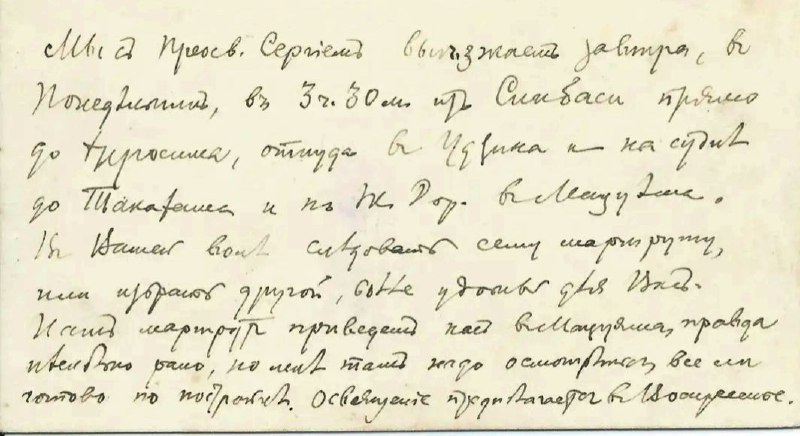 Мы съ Преосв. Сергіемъ выѣзжаемъ завтра, въ
Понедѣльникъ, въ 3 ч. 30 м. изъ Симбаси прямо
до Хиросима, откуда въ Удзина и на суднѣ
до Такахама и по Ж. Дор. въ Мацуяма.
Въ Вашей волѣ слѣдовать сему маршруту,
или избрать другой, болѣе удобный для Васъ.
Нашъ маршрутъ приведетъ насъ въ Мацуяма, правда
нѣсколько рано, но мнѣ тамъ надо осмотрѣть, все ли
готово по постройкѣ. Освященіе предполагается въ Воскресенье.